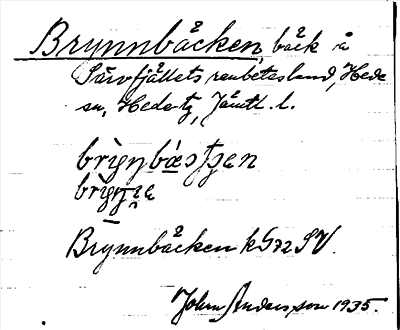 Brynnbäcken, bäck å
Särvfjällets renbetesland, Hede
sn, Hede tg, Jämtl. l.
Brynnbäcken k 572 SV.
John Andersson 1935.